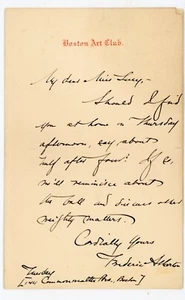 Boston Art Club.
My dear Miss Lucy,-
Should I find
you at home on Thursday
afternoon, say, about
half after four? If so,
will reminisce about
the ball and discuss other
weighty matters.
Cordially Yours
Frederic
Tuesday
Commonwealth Ave. Boston